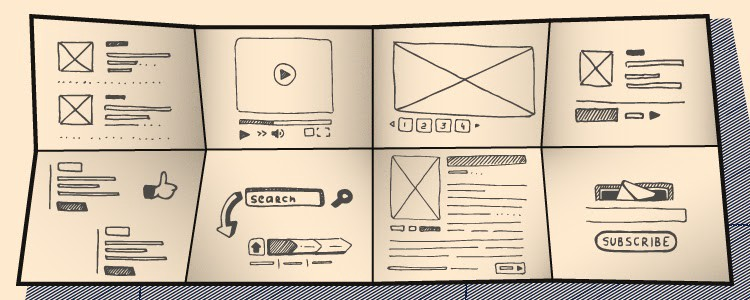 1 2 3 4
search
SUBSCRIBE